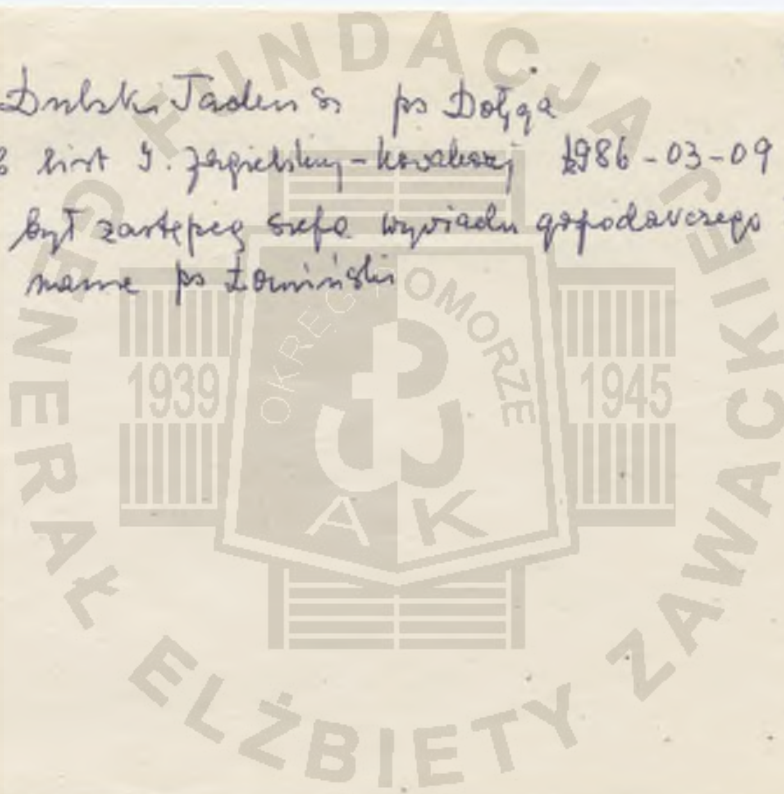 Dulski Tadeusz ps Dołęga
list J. Jagielskiej-Kowalskiej 1986-03-09
był zastępcą szefa wywiadu gospodarczego
ps Łomiński
FUNDACJA GENERAŁ ELŻBIETY ZAWACKIEJ
OKRĘG POMORZE
1939 1945
AK